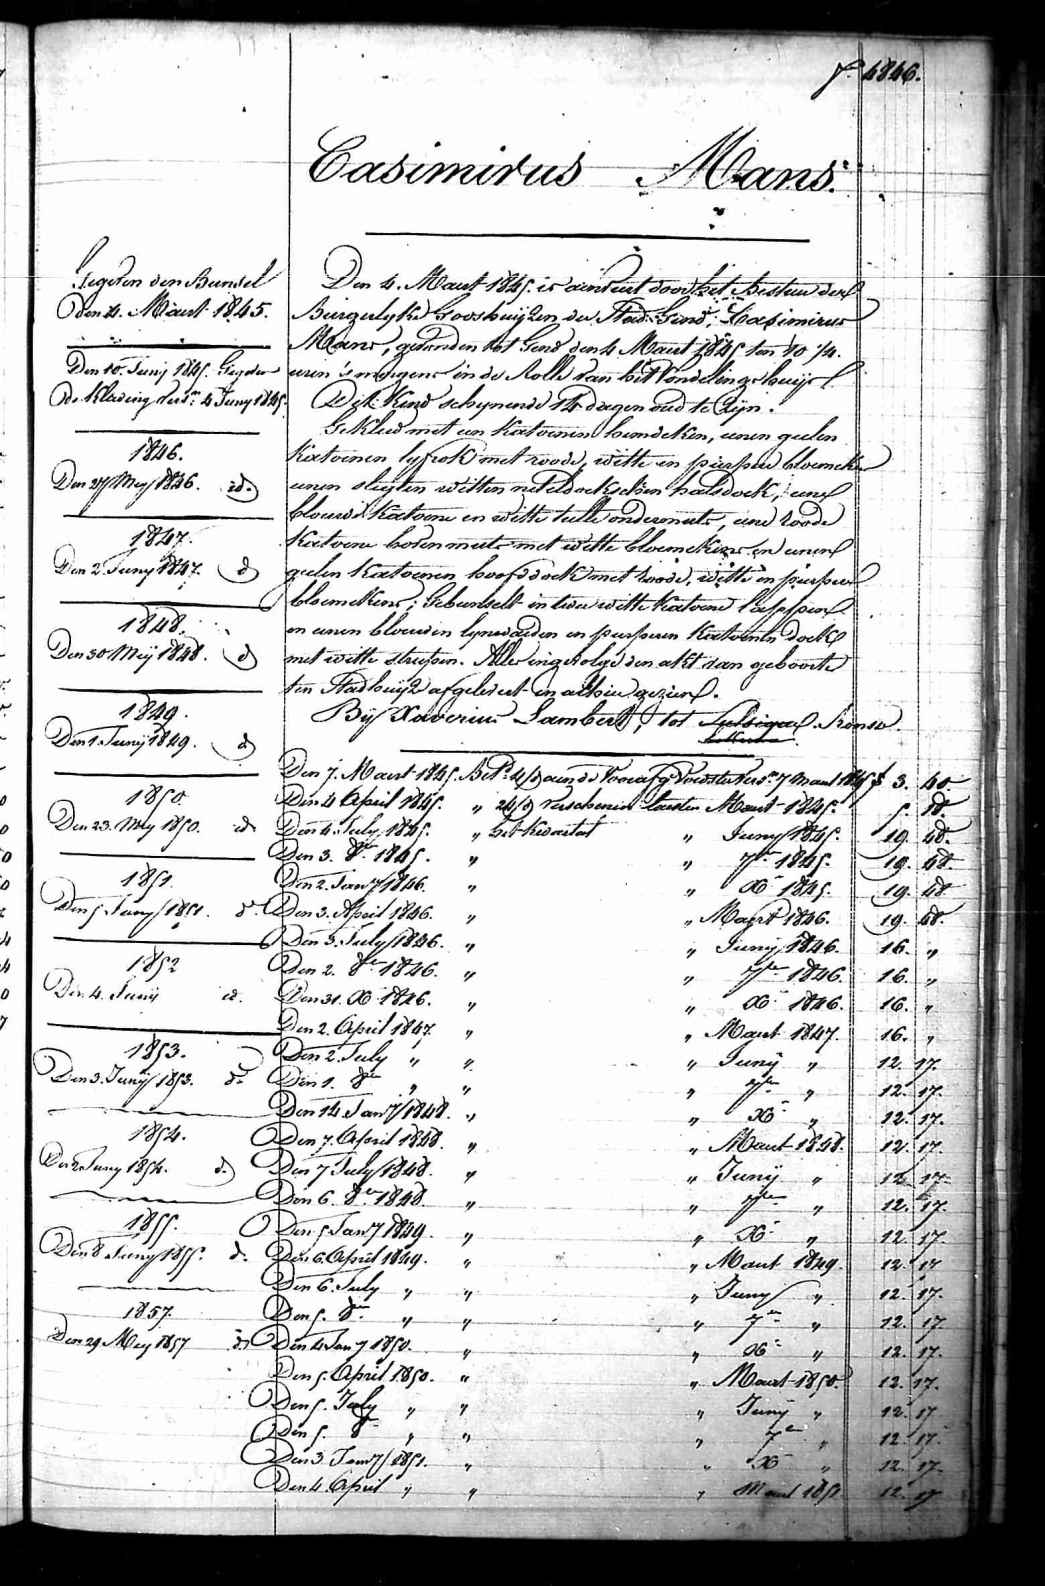 4846.
Casimirus Mans.
Gegeven den Bunsel
den 4. Maart 1845.
Den 10. Juny 1845. Gegeven
de Kleeding vers. 4 Juny 1845.
1846.
Den 27 Mey 1846. id.
1847.
Den 2. Juny 1847. d
1848.
Den 30 Meij 1848. d
1849.
Den 1. Junij 1849. d
1850.
Den 23. Mey 1850. id
1851.
Den 5 Juny 1851. d.
1852
Den 4. Junij id.
1853.
Den 3. Junij 1853. d.
1854.
Den 2 Juny 1854. d.
1855.
Den 8 Juny 1855. d.
1857.
Den 29 Mey 1857 d
Den 4. Maart 1845. is aenveert door het Bestuer der
Burgerlyke Godshuijzen der Stad Gend, Casimirus
Mans, gevonden tot Gend den 4 Maart 1845 ten 10 1/4.
uren 's morgens in de Rolle van het Vondelingshuijs.
Dit Kind schynende 14 dagen oud te zyn.
Gekleed met een katoenen hemdeken, eenen geelen
katoenen lyfrok met roode, witte en purpere bloemekens
eenen sleyten witten neteldoekschen halsdoek, eene
blouwe katoene en witte tulle ondermuts, eene roode
katoene bovenmuts met witte bloemekens en eenen
geelen katoenen hoofddoek met roode, witte en purpere
bloemekens; Gebunselt in twee witte katoene lappen
en eenen blouwen lynwaeden en purperen katoenen doek
met witte strepen. Alles ingevolge den akt van geboorte
ten Stadhuijze afgelevert en alhier gezien.
By Xaverius Lambert, tot
Den 7. Maart 1845. Bet. aen de Voorafg. Voedster vers. 7 Maart 1845 f 3. 40.
Den 4 April 1845. " verschenen laesten Maart 1845. 5. 48.
Den 4. July 1845. " het Kwartael " Juny 1845. 19. 48.
Den 3. 8er 1845. " " 7er 1845. 19. 48.
Den 2. Janry 1846. " " X 1845. 19. 48
Den 3. April 1846. " " Maart 1846. 19. 48.
Den 3. July 1846. " " Junij 1846. 16. "
Den 2. 8er 1846. " " 7er 1846. 16. "
Den 31. X 1846. " " X 1846. 16. "
Den 2. April 1847. " " Maart 1847. 16. "
Den 2. July " " " Junij " 12. 17.
Den 1. 8er " " " 7er " 12. 17.
Den 14. Janry 1848. " " X " 12. 17.
Den 7. April 1848. " " Maart 1848. 12. 17.
Den 7 July 1848. " " Junij " 12. 17.
Den 6. 8er 1848. " " 7er " 12. 17.
Den 5 Janry 1849. " " X " 12. 17.
Den 6. April 1849. " " Maart 1849. 12. 17
Den 6. July " " " Juny " 12. 17.
Den 5. 8er " " " 7er " 12. 17
Den 4 Janry 1850. " " X " 12. 17.
Den 5. April 1850. " " Maart 1850. 12. 17.
Den 5. July " " " Junij " 12. 17
Den 5. 8er " " " 7er " 12. 17.
Den 3. Janry 1851. " " X " 12. 17.
Den 4. April " " " Maart 1851 12. 17